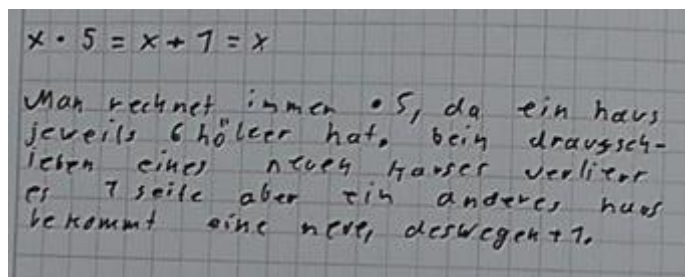 x · 5 = x + 1 = x
Man rechnet immer · 5, da ein haus
jeweils 6 hölzer hat. beim draufsch-
ieben eines neuen Hauses verlierr
es 1 seite aber ein anderes haus
bekommt eine neue, deswegen + 1.